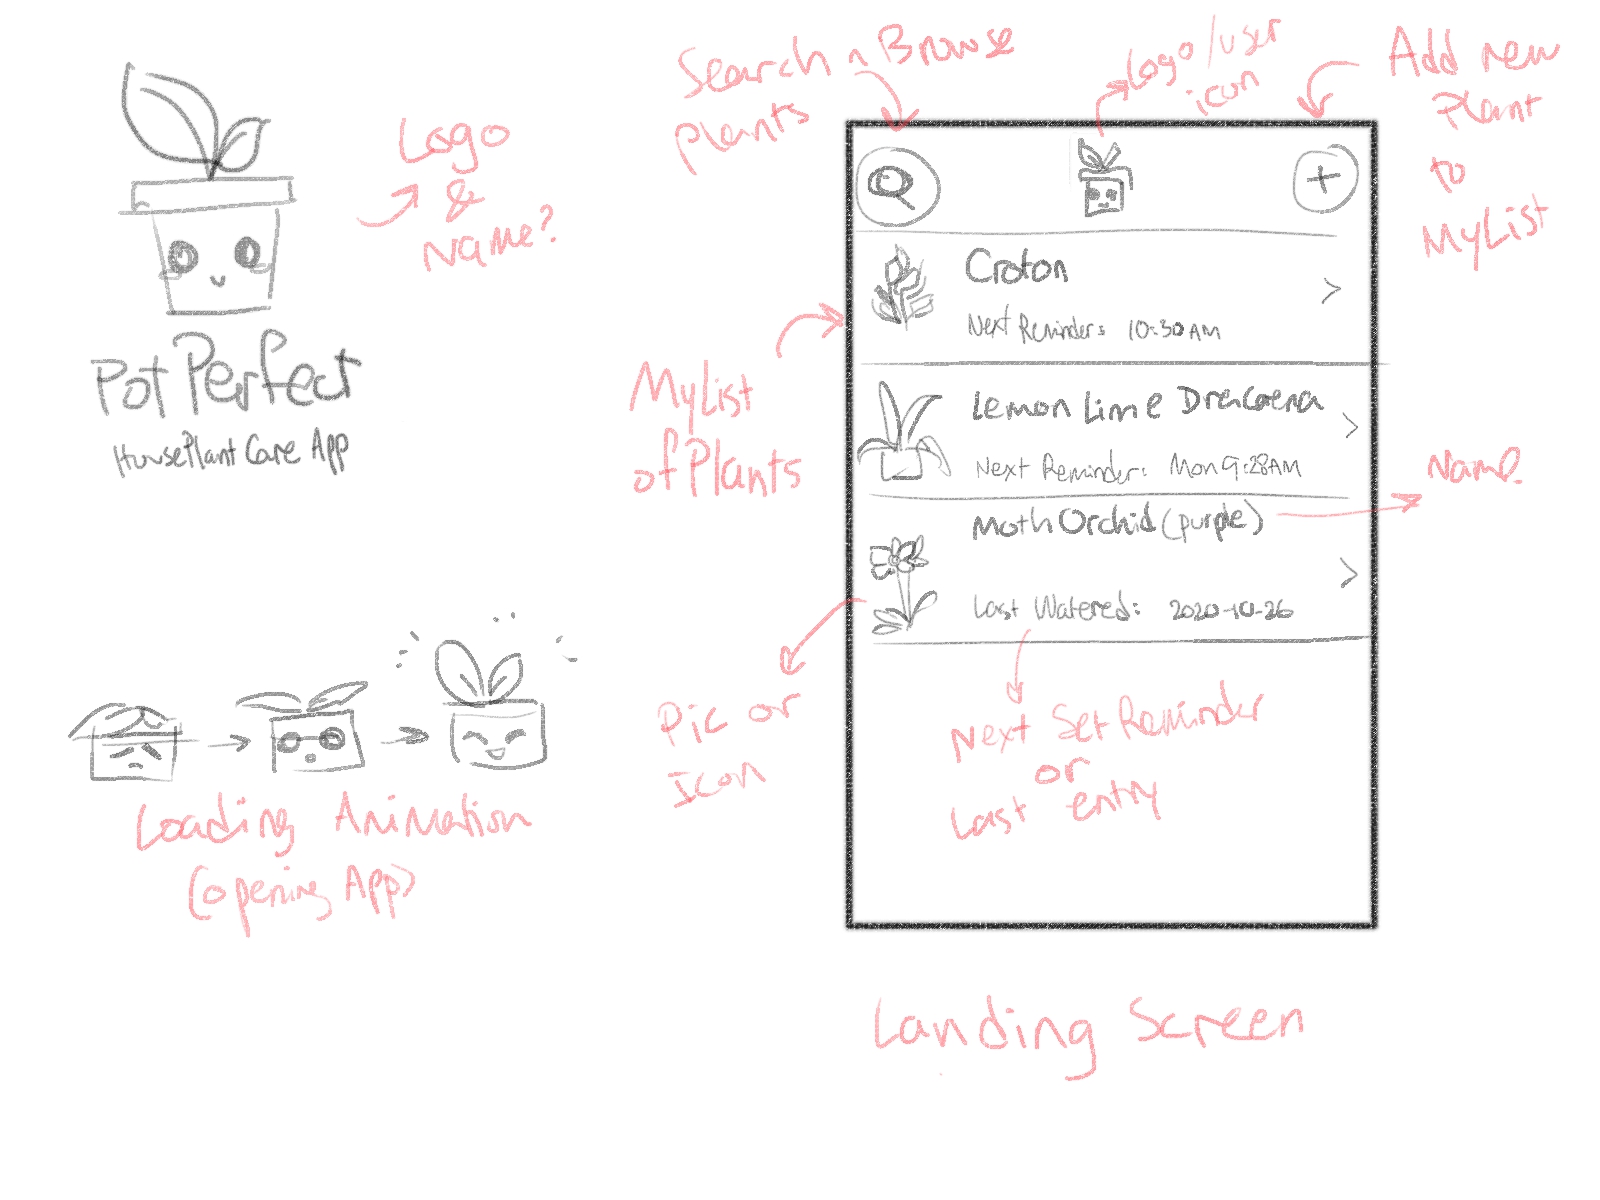 Logo
&
Name?
Pot Perfect
HousePlant Care App
Loading Animation
(opening App)
Search n Browse
Plants
Logo/user
icon
Add new
Plant
to
MyList
MyList
of Plants
Croton
Next Reminder: 10:30AM
Lemon Lime Dracaena
Next Reminder: Mon 9:28AM
Moth Orchid (purple)
Last Watered: 2020-10-26
Name
Pic or
Icon
Next Set Reminder
or
Last entry
Landing Screen